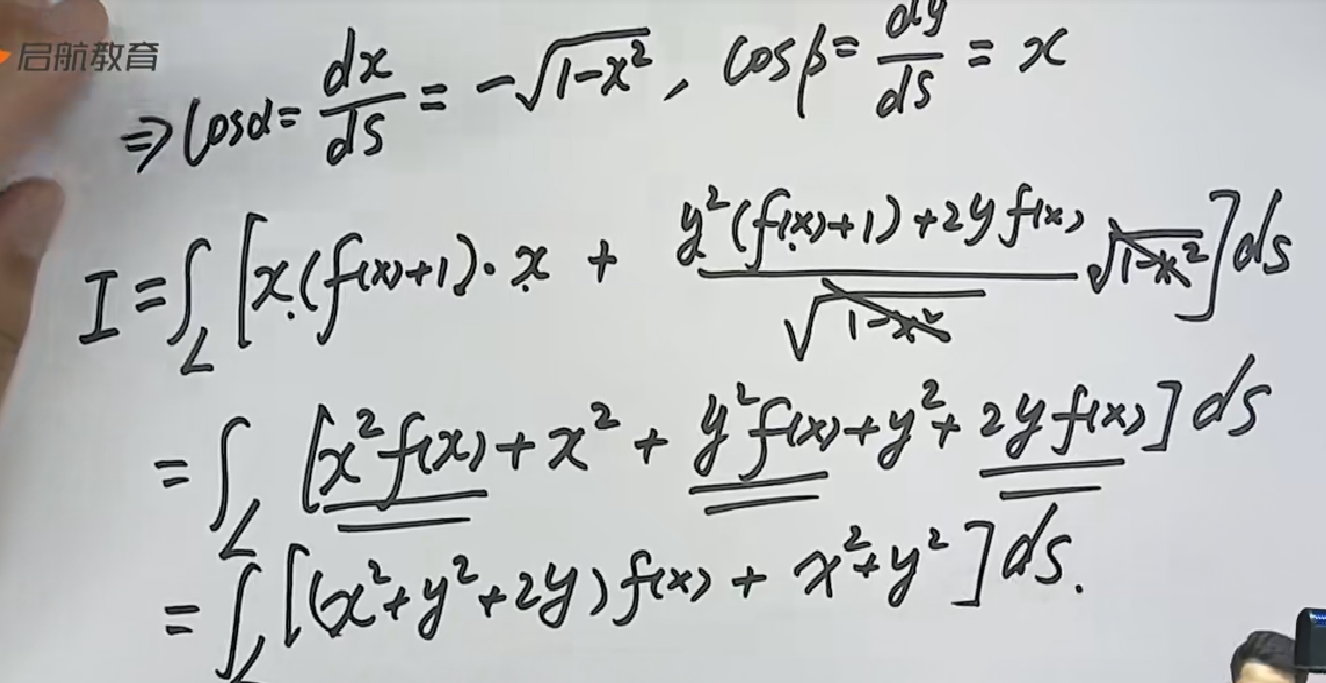 启航教育
⇒ cosα = dx/ds = -√(1-x²), cosβ = dy/ds = x
I = ∫_L [x(f(x)+1)·x + (y²(f(x)+1)+2yf(x))/√(1-x²) √(1-x²)] ds
= ∫_L [x²f(x)+x²+y²f(x)+y²+2yf(x)] ds
= ∫_L [(x²+y²+2y)f(x)+x²+y²] ds.